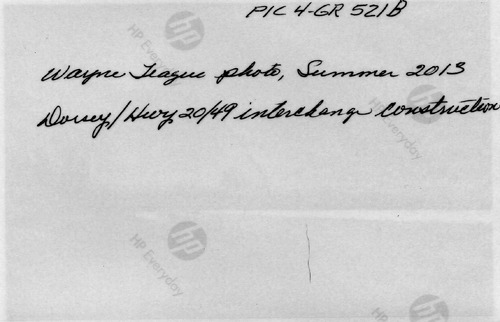 PIC 4-GR 521B
Wayne Teague photo, Summer 2013
Dorsey/Hwy 20/49 interchange construction
hp
HP Everyday
hp
HP Everyday
hp
HP Everyday
hp
HP Everyday